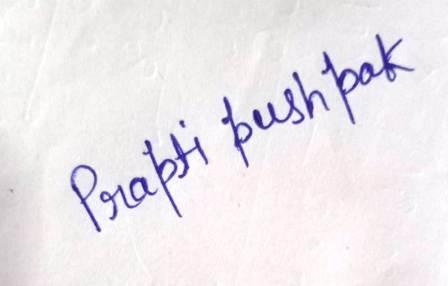 Prapti pushpak